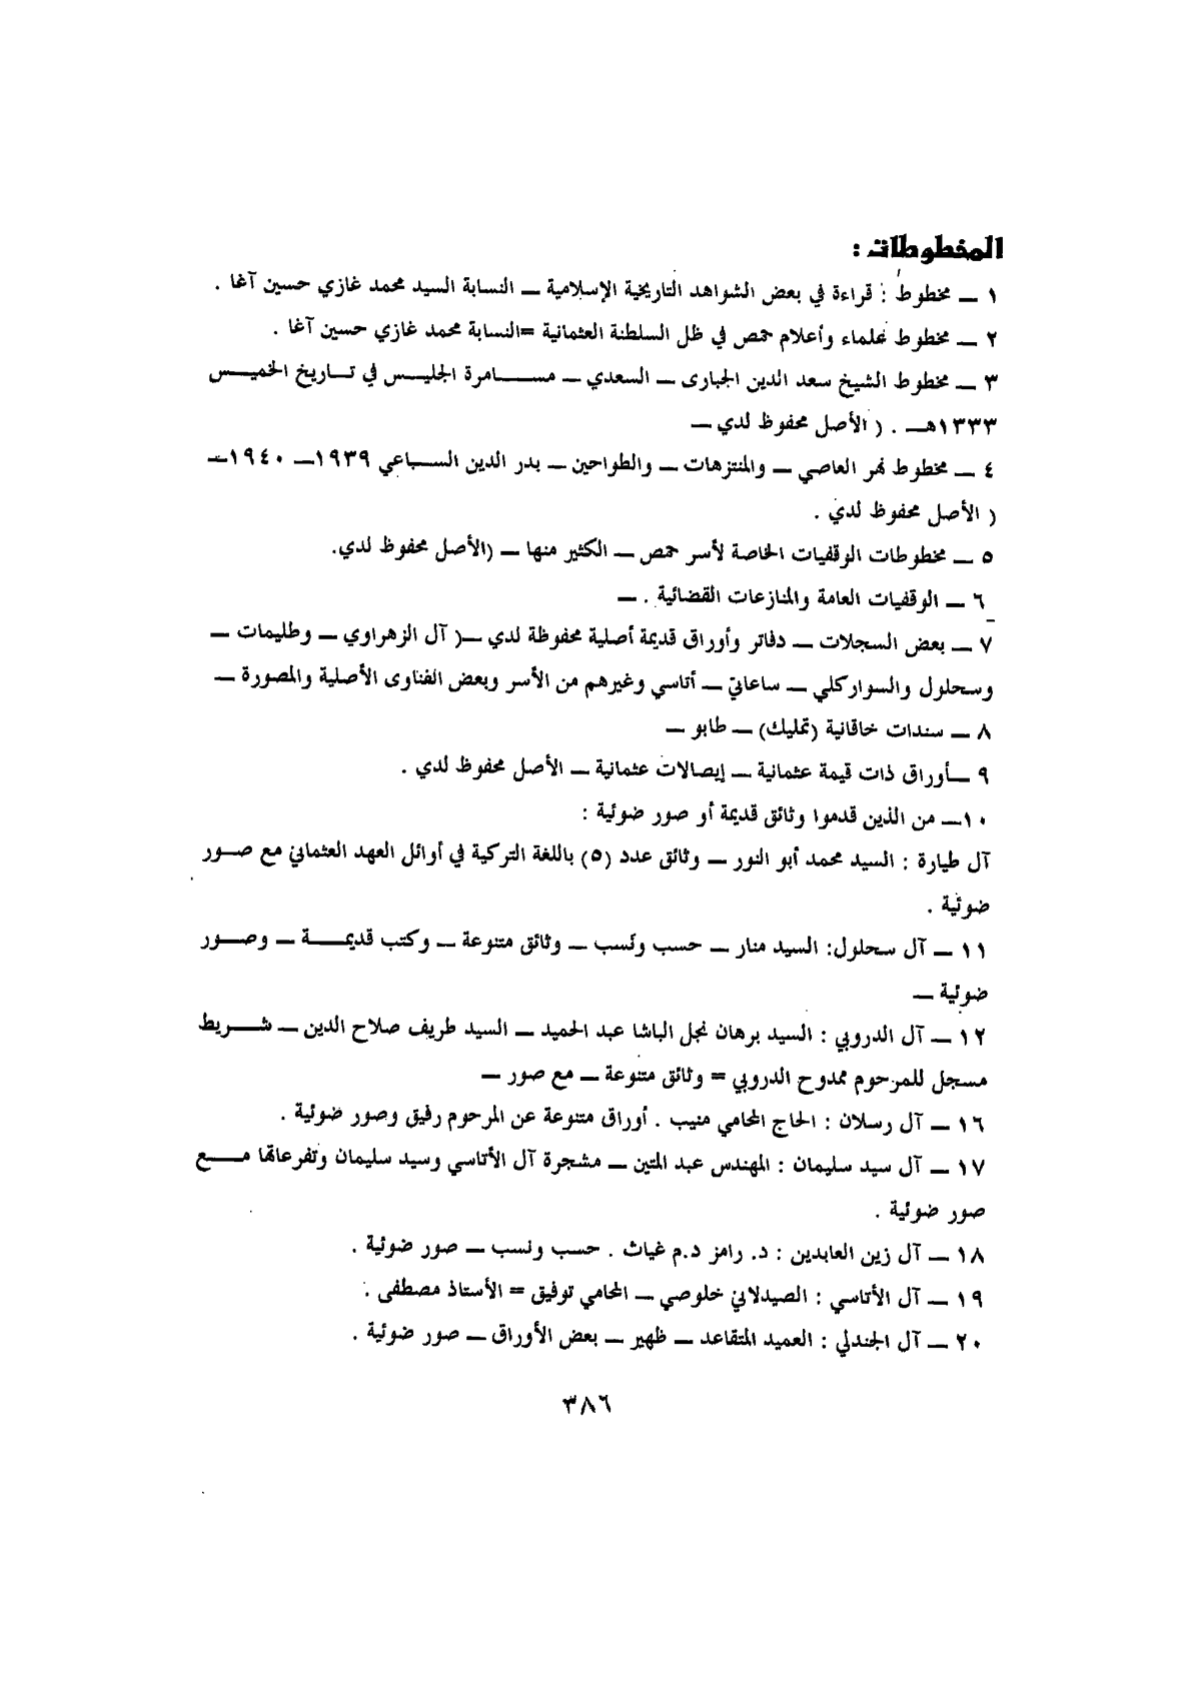 المخطوطات :
١ — مخطوط : قراءة في بعض الشواهد التاريخية الإسلامية — النسابة السيد محمد غازي حسين آغا .
٢ — مخطوط علماء وأعلام حمص في ظل السلطنة العثمانية =النسابة محمد غازي حسين آغا .
٣ — مخطوط الشيخ سعد الدين الجبارى — السعدي — مسامرة الجليس في تاريخ الخميس
١٣٣٣هـ . ( الأصل محفوظ لدي —
٤ — مخطوط نهر العاصي — والمنتزهات — والطواحين — بدر الدين السباعي ١٩٣٩— ١٩٤٠—
( الأصل محفوظ لدي .
٥ — مخطوطات الوقفيات الخاصة لأسر حمص — الكثير منها — (الأصل محفوظ لدي.
٦ — الوقفيات العامة والمنازعات القضائية . —
٧ — بعض السجلات — دفاتر وأوراق قديمة أصلية محفوظة لدي —( آل الزهراوي — وطليمات —
وسحلول والسواركلي — ساعاتي — أتاسي وغيرهم من الأسر وبعض الفتاوى الأصلية والمصورة —
٨ — سندات خاقانية (تمليك) — طابو —
٩ —أوراق ذات قيمة عثمانية — إيصالات عثمانية — الأصل محفوظ لدي .
١٠— من الذين قدموا وثائق قديمة أو صور ضوئية :
آل طيارة : السيد محمد أبو النور — وثائق عدد (٥) باللغة التركية في أوائل العهد العثماني مع صور
ضوئية .
١١ — آل سحلول: السيد منار — حسب ونسب — وثائق متنوعة — وكتب قديمة — وصور
ضوئية —
١٢ — آل الدروبي : السيد برهان نجل الباشا عبد الحميد — السيد طريف صلاح الدين — شريط
مسجل للمرحوم ممدوح الدروبي = وثائق متنوعة — مع صور —
١٦ — آل رسلان : الحاج المحامي منيب . أوراق متنوعة عن المرحوم رفيق وصور ضوئية .
١٧ — آل سيد سليمان : المهندس عبد المتين — مشجرة آل الأتاسي وسيد سليمان وتفرعاتها مع
صور ضوئية .
١٨ — آل زين العابدين : د. رامز د.م غياث . حسب ونسب — صور ضوئية .
١٩ — آل الأتاسي : الصيدلاني خلوصي — المحامي توفيق = الأستاذ مصطفى .
٢٠ — آل الجندلي : العميد المتقاعد — ظهير — بعض الأوراق — صور ضوئية .
٣٨٦